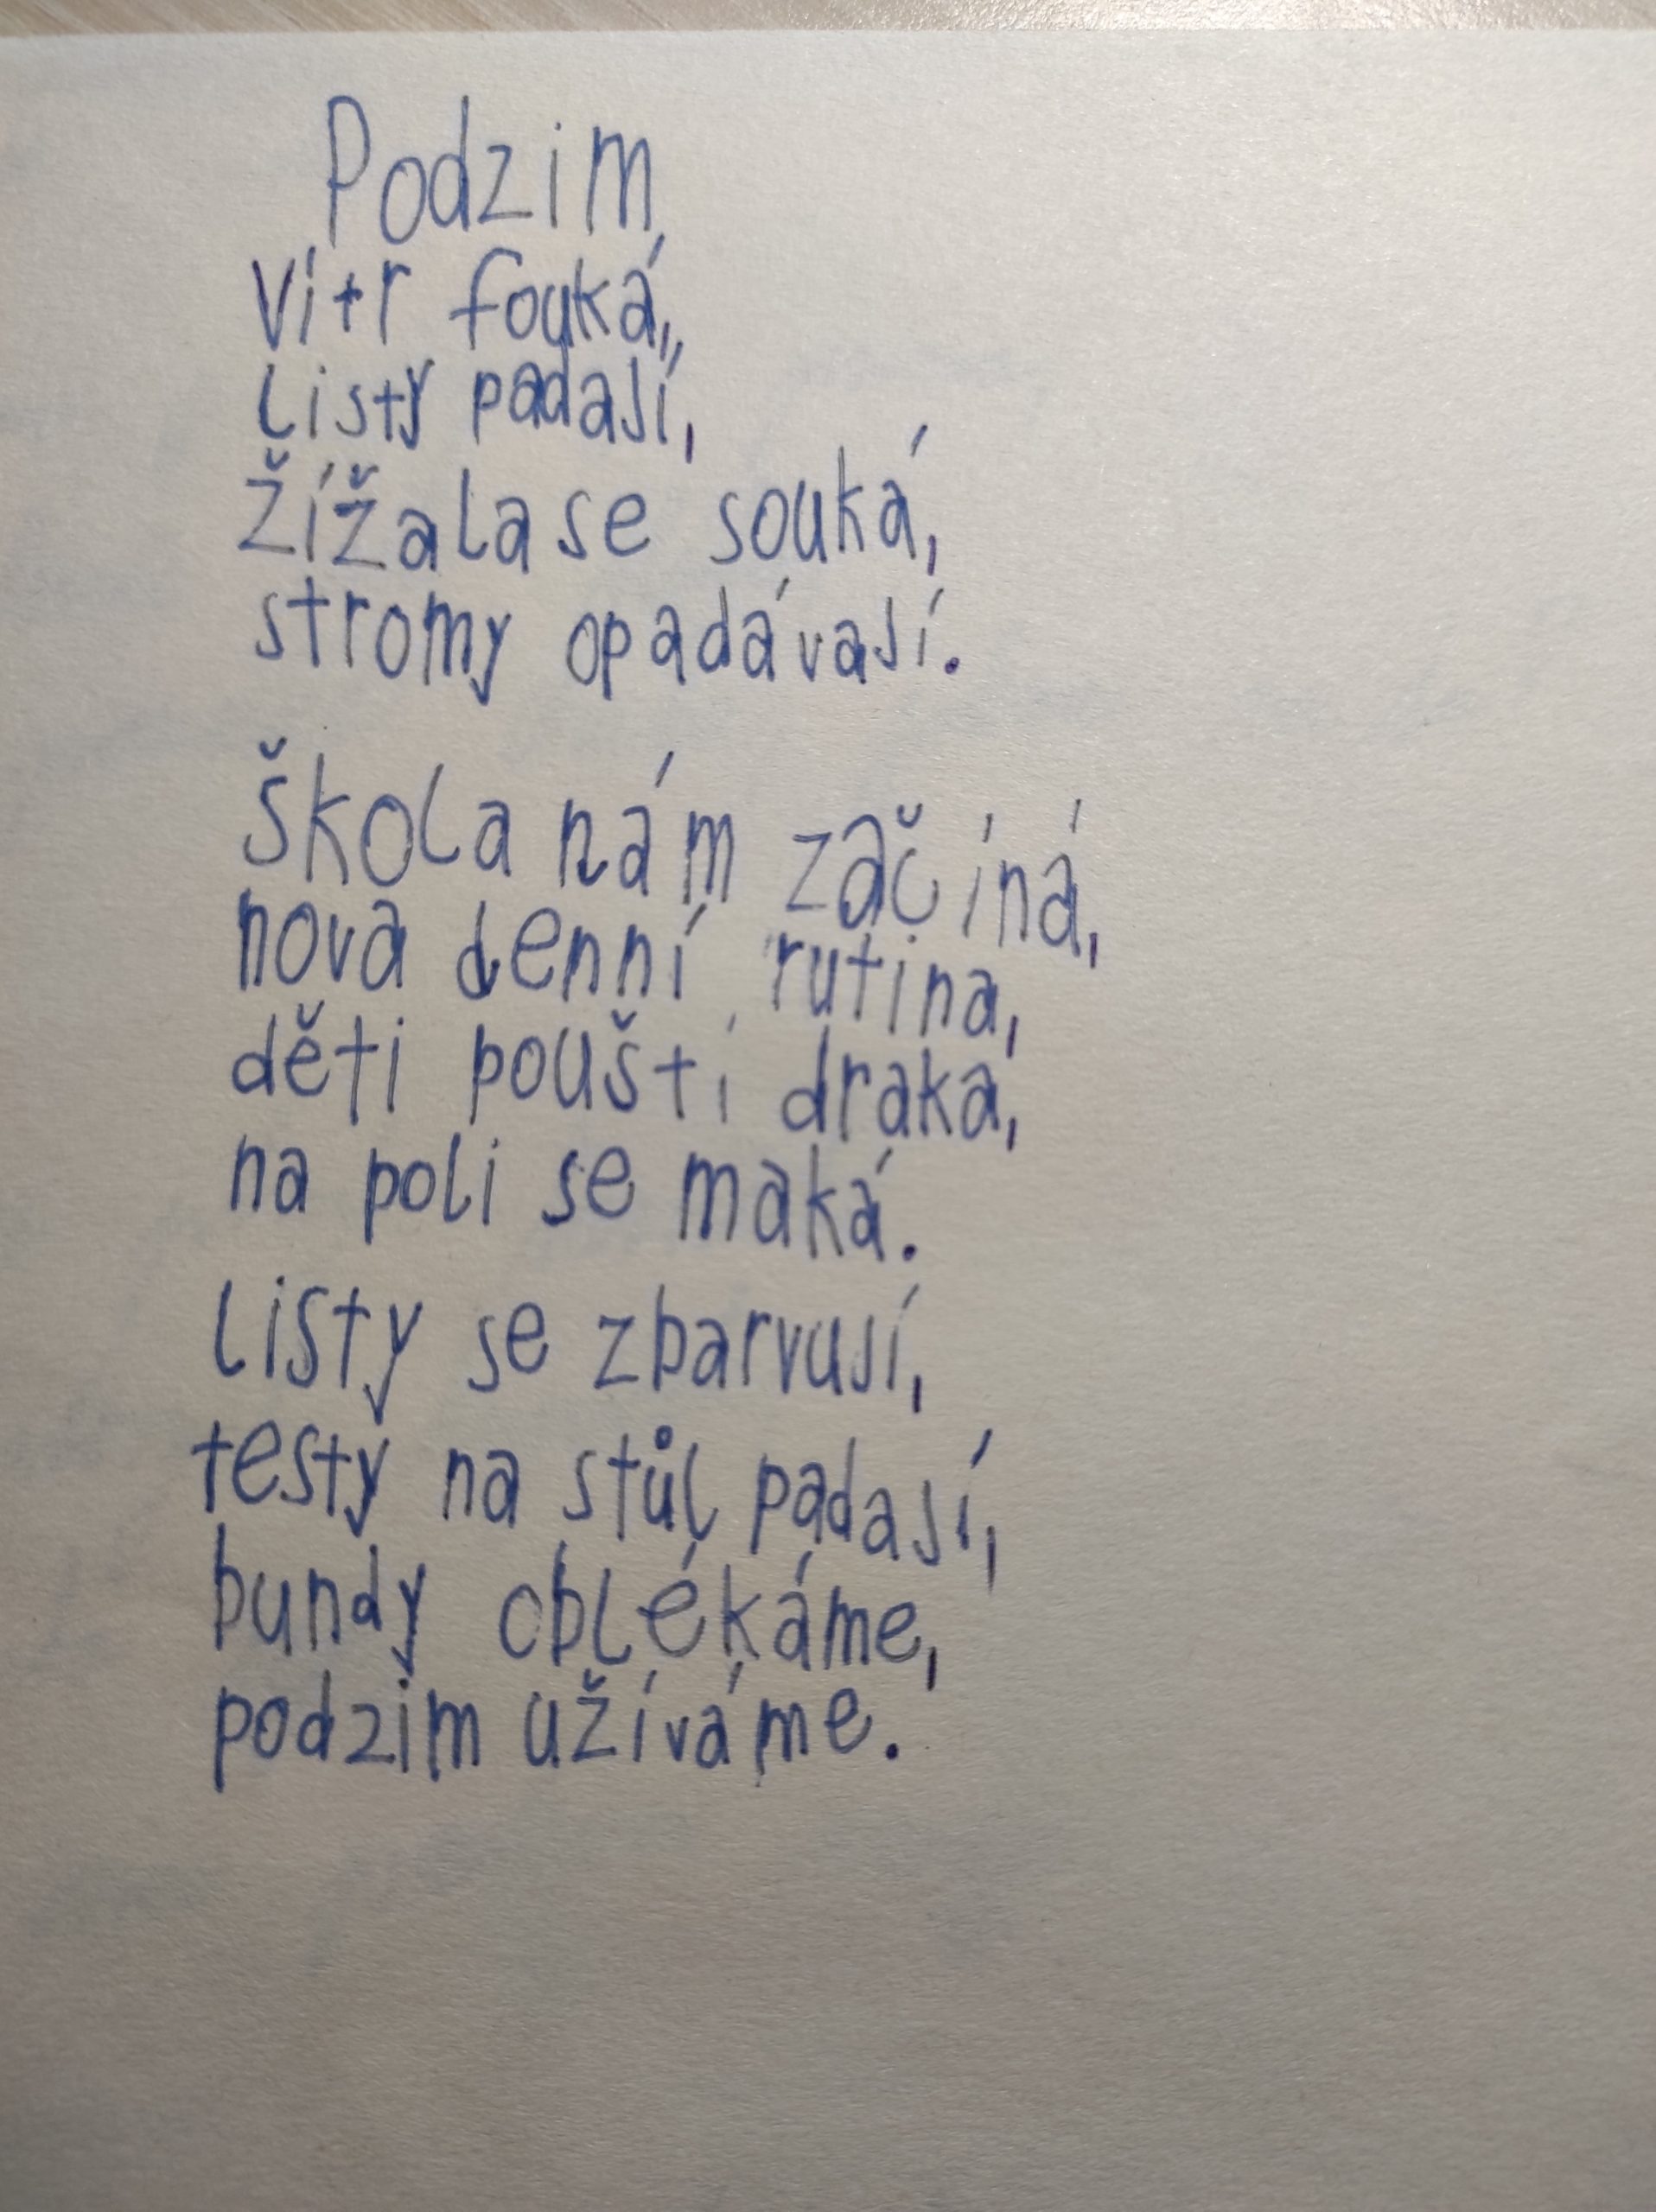 Podzim
Vítr fouká,
listy padají,
žížala se souká,
stromy opadávají.
Škola nám začíná,
nova denní rutina,
děti pouští draka,
na poli se maká.
listy se zbarvují,
testy na stůl padají,
bundy oblékáme,
podzim užíváme.